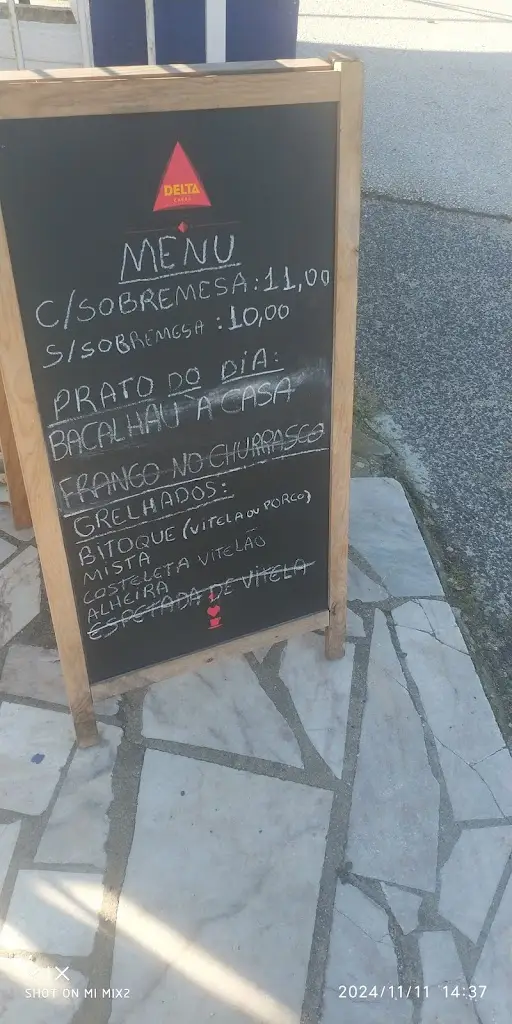 DELTA
CAFÉS
MENU
C/SOBREMESA:11,00
S/SOBREMESA:10,00
PRATO DO DIA:
BACALHAU À CASA
FRANGO NO CHURRASCO
GRELHADOS:
BITOQUE (VITELA OU PORCO)
MISTA
COSTELETA VITELÃO
ALHEIRA
ESPETADA DE VITELA
SHOT ON MI MIX2
2024/11/11 14:37